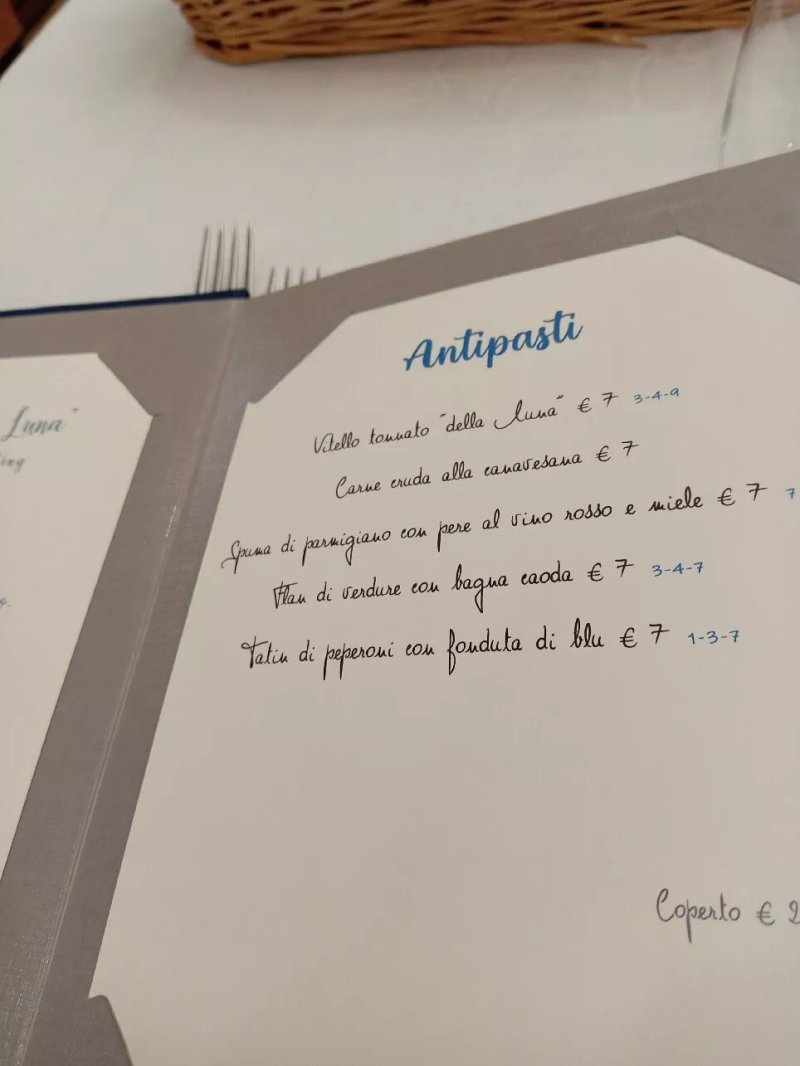 Luna"
Antipasti
Vitello tonnato "della Luna" € 7 3-4-9
Carne cruda alla canavesana € 7
Spuma di parmigiano con pere al vino rosso e miele € 7 7
Flan di verdure con bagna caoda € 7 3-4-7
Tatin di peperoni con fonduta di blu € 7 1-3-7
Coperto € 2